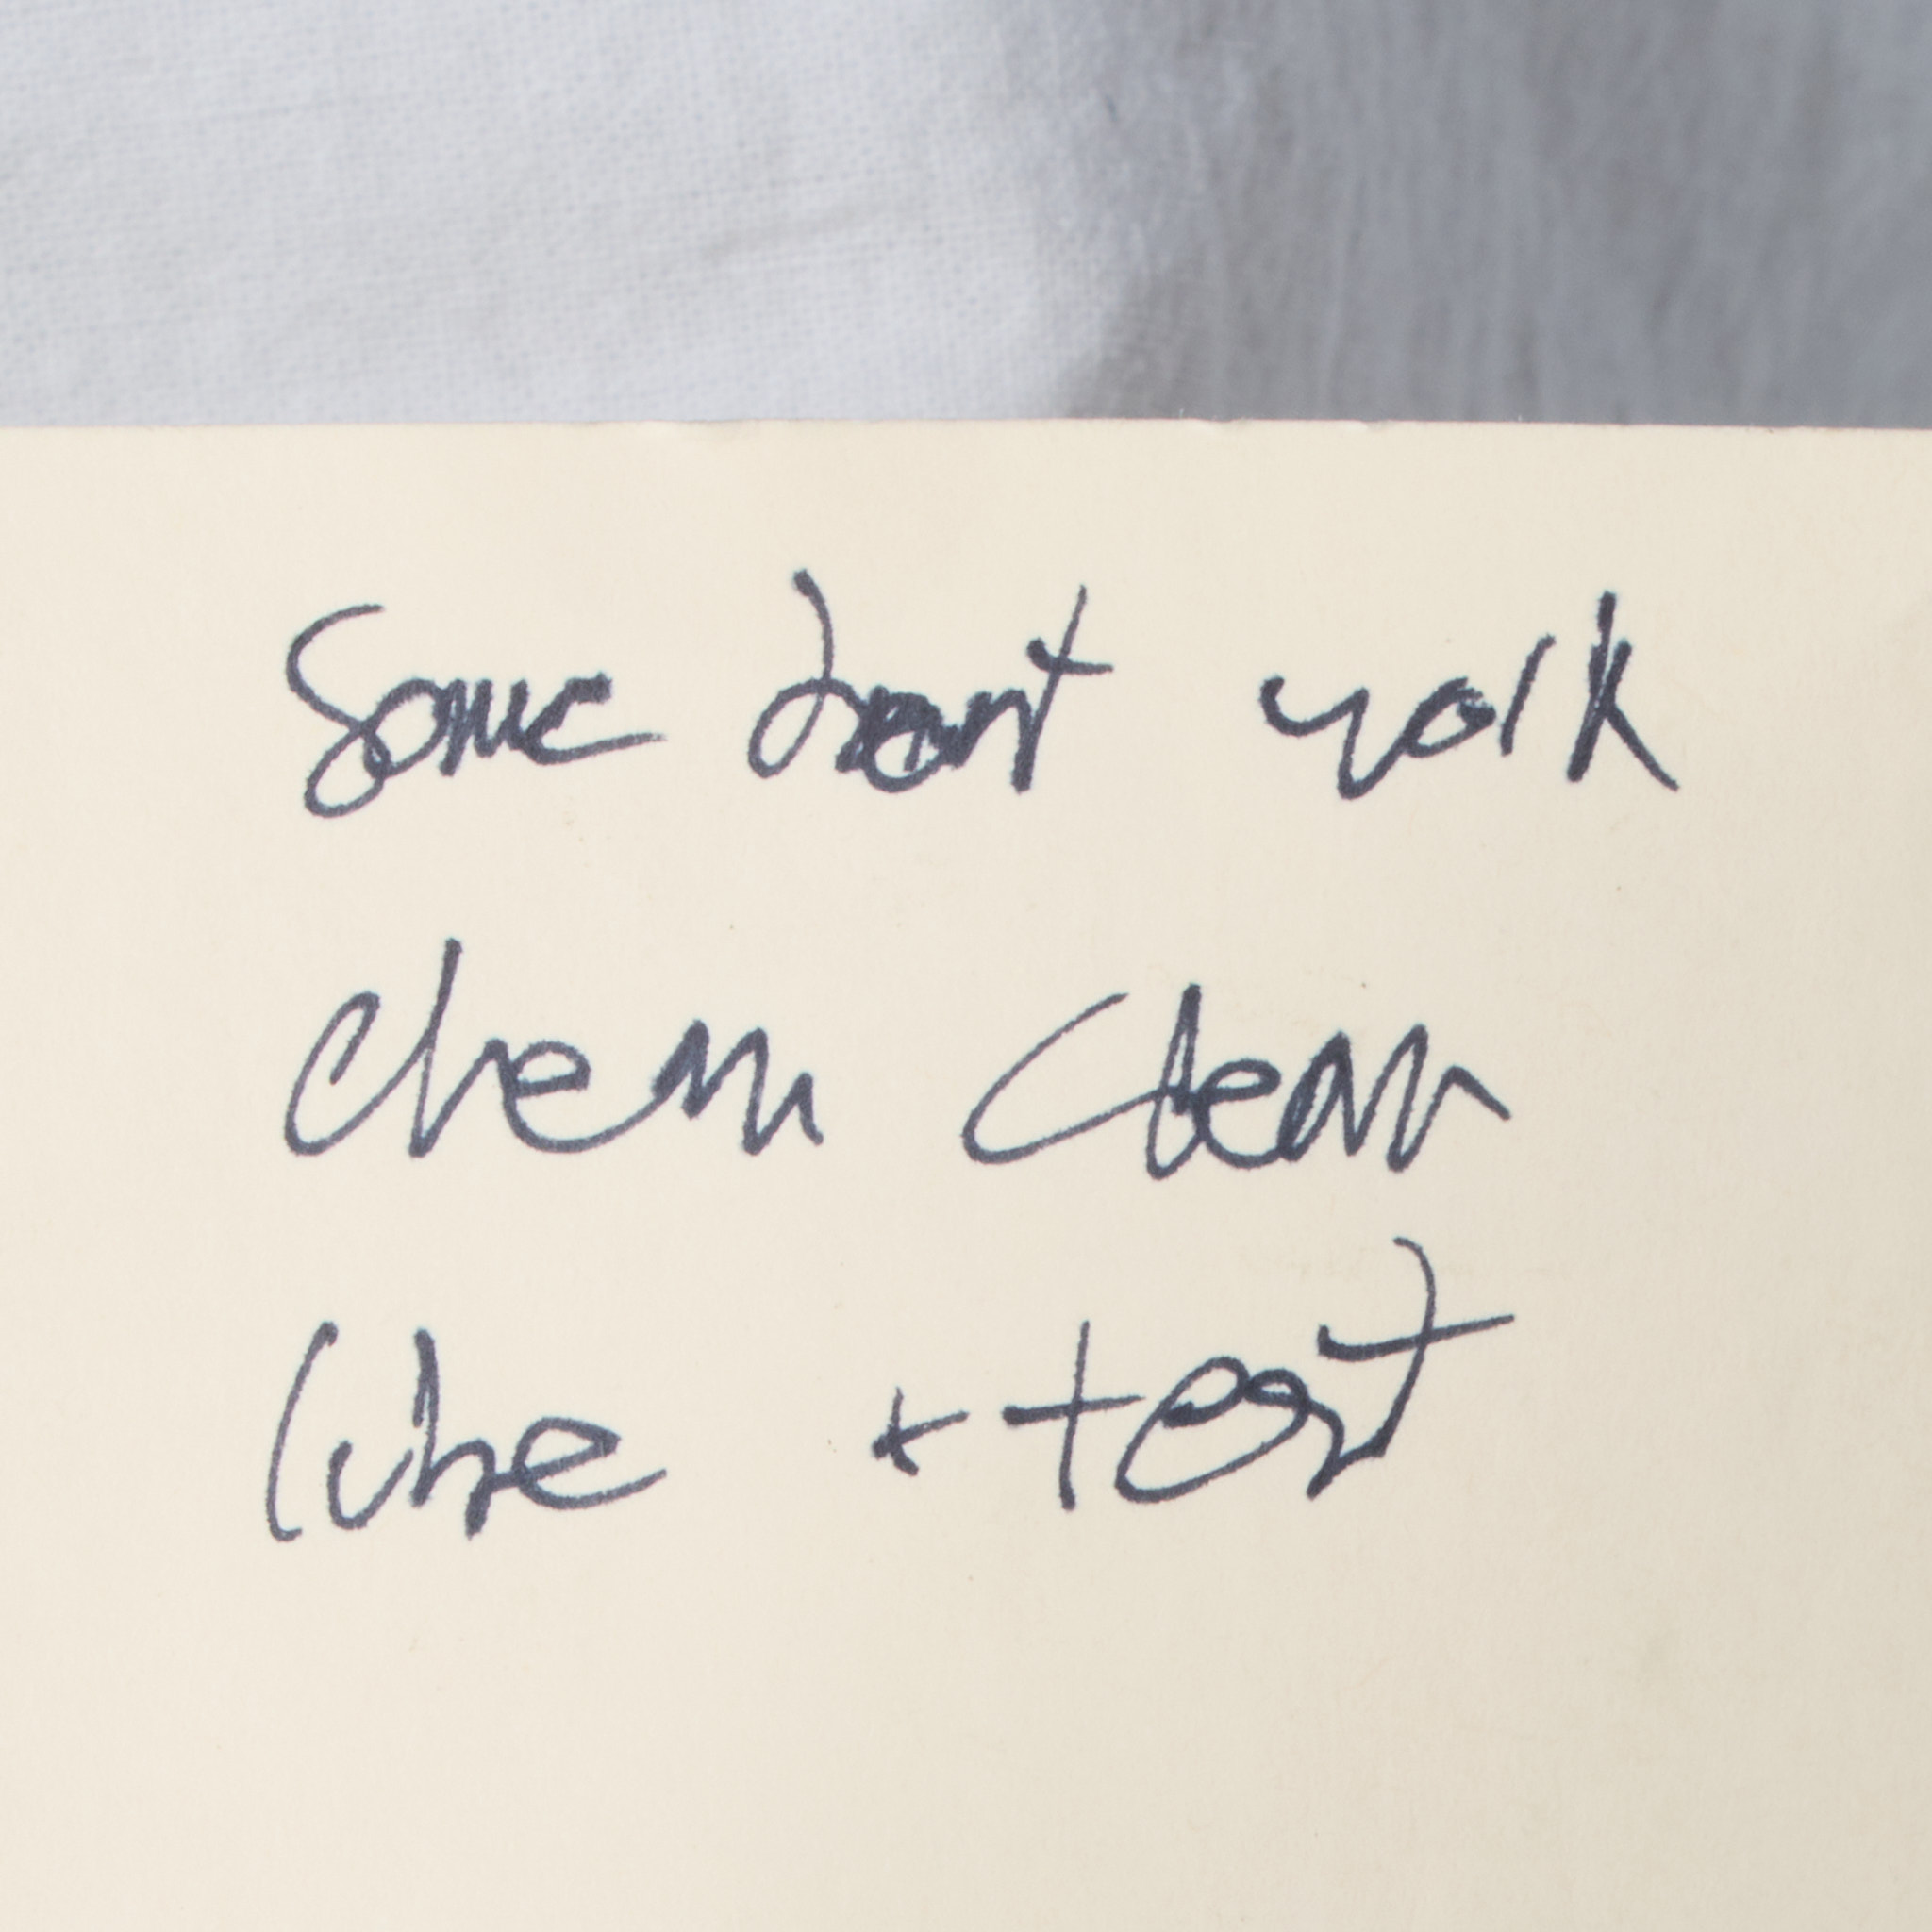 Some dont work
chem clean
lube + test